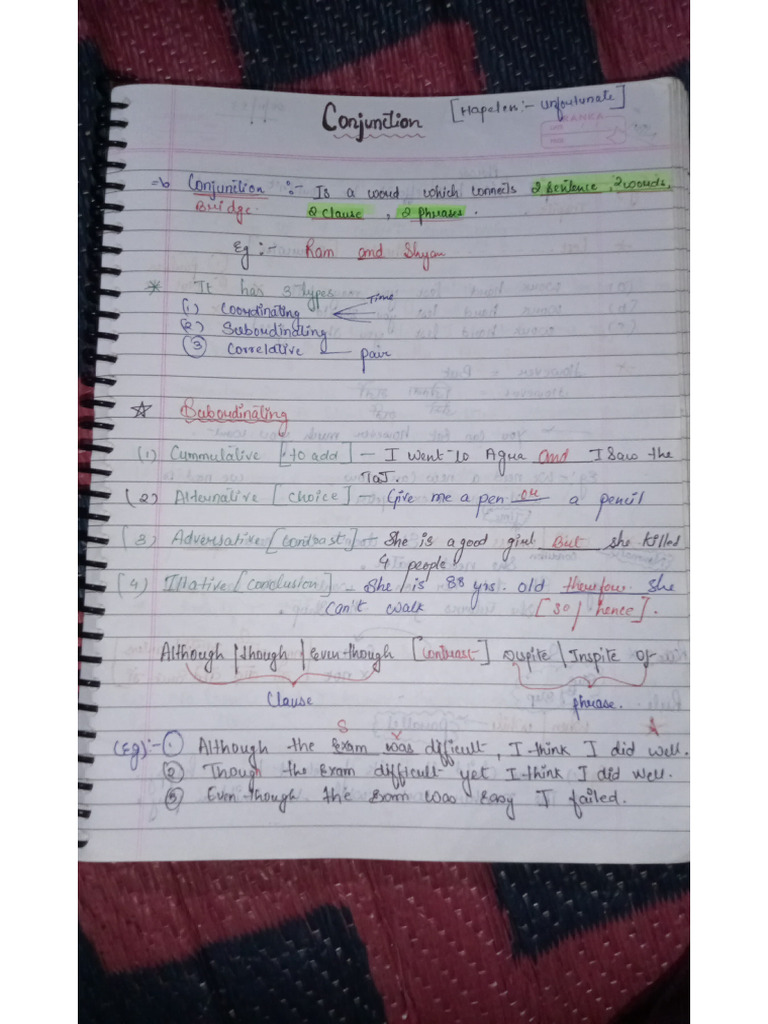 Conjunction [Hapelen:- unfortunate]
RANKA
=> Conjunction :- Is a word which connects 2 sentence, 2 words,
Bridge. 2 clause, 2 phrases.
Eg :- Ram and Shyam
* It has 3 types Time
(1) Coordinating
(2) Subordinating
(3) Correlative — pair
☆ Suboudinating
(1) Cummulative [to add] - I went to Agra and I saw the
Taj.
(2) Alternative [choice] - Give me a pen or a pencil
(3) Adversative [contrast] - She is a good girl But she killed
4 people
(4) Illative [conclusion] - She is 88 yrs. old therefore she
can't walk [so / hence].
Although | though | Even-though [contrast] Despite | Inspite of
Clause phrase.
S V
(Eg) :- (1) Although the Exam was difficult, I think I did well.
(2) Though the Exam difficult yet I think I did well.
(3) Even-though the Exam was easy I failed.